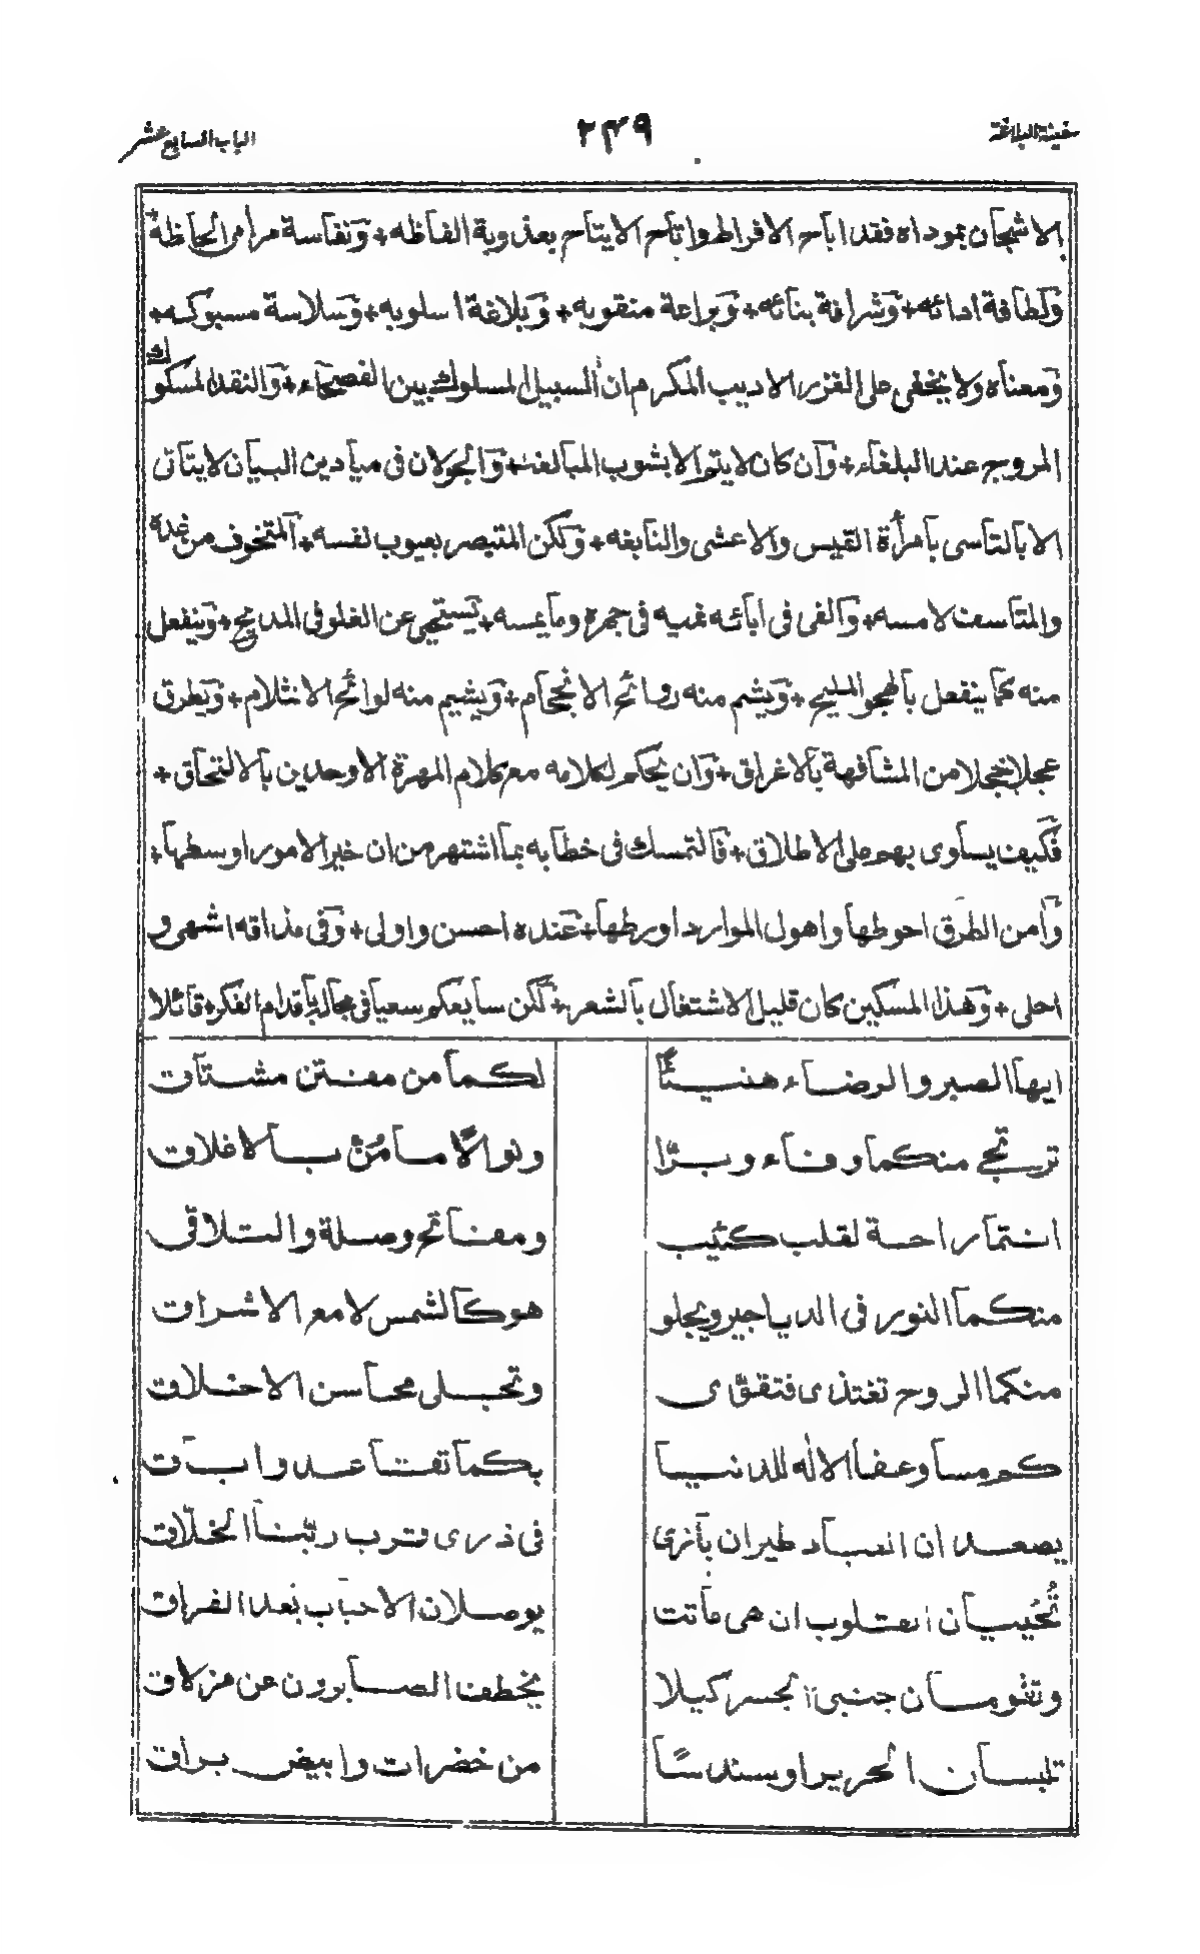 سفينة البلاغة
٢٤٩
الباب السابع عشر
الاشجان بموداه فقد اباح الافراط واتاح الايتاح بعذوبة الفاظه + ونفاسة مرامر الحاظه +
ولطافة ادائه + وشرافة بنائه + وبراعة منقوبه + وبلاغة اسلوبه + وسلاسة مسبوكه +
ومعناه ولا يخفى على القزر الاديب المكرم ان السبيل المسلوك بين الفصحاء + والنقد المسكوك
المروج عند البلغاء + وان كان لا يتم الا بشوب المبالغة + والجولان فى ميادين البيان لا يتاتى
الا بالتاسى بامرأة القيس والاعشى والنابغه + ولكن المتبصر بعيوب نفسه + المتخوف من غده
والمتاسف لامسه + والفى فى ابائه نميه فى جمره وما يمسه + يستحيى عن الغلو فى المديح + وينفعل
منه كما ينفعل بالهجو المليح + ويشم منه روائح الانجحام + ويشيم منه لوائح الانثلام + ويطرق
عجلا خجلا من المشافهة بالاغراق + وان يحكم لكلامه مع كلام المهرة الاوحدين بالالتحاق +
فكيف يساوى بهم على الاطلاق + فالتمسك فى خطابه بما اشتهر من ان خير الامور اوسطها +
وأمن الطرق احوطها واهول الموارد اورطها + عنده احسن واولى + وفى مذاقه اشهى و
احلى + وهذا المسكين كان قليل الاشتغال بالشعر + لكن سايعكم سعيا فى مجاله باقدام الفكر + قائلا
ايها الصبر والرضاء هنيئًا لكما من مفتن مشتاق
ترتجى منكما وفاء وبرّا ونوالًا مامن بالاغلاق
انتما راحة لقلب كئيب ومفاتح وصلة والتلاقى
منكما النور فى الدياجير ويجلو هو كالشمس لامع الاشراق
منكما الروح تغتذى فتقوّى وتجلى محاسن الاخلاق
كم مساوعفا الاله للدنيا بكما تفتا عد وابــاق
يصعد ان العباد طيران بازى فى ذرى قرب ربّنا الخلّاق
تُحييان القلوب ان هى ماتت يوصلان الاحباب بعد الفراق
وتقومان جنبى الجسر كيلا يخطف الصابرون عن مزلاق
تلبسان الحرير اوسندسًا من خضرات وابيض براق